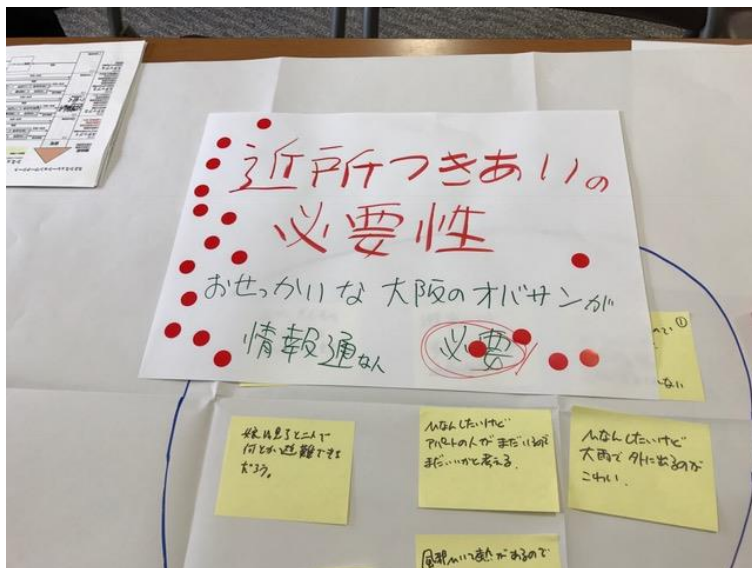 近所つきあいの
必要性
おせっかいな大阪のオバサンが
情報通な人 必要
①
ない
娘は息子と二人で
何とか避難できる
だろう。
ひなんしたいけど
アパートの人がまだいるので
まだいいかと考える.
ひなんしたいけど
大雨で外に出るのが
こわい.
風邪ひいて熱があるので